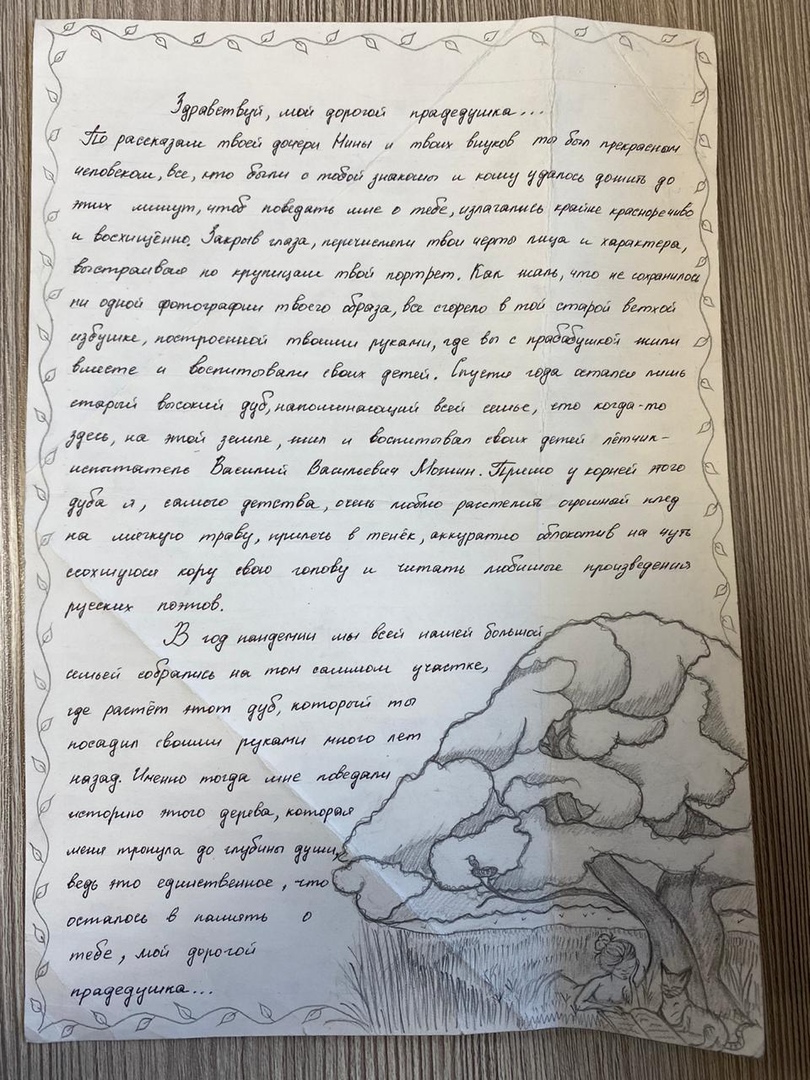 Здравствуй, мой дорогой прадедушка...
По рассказам твоей дочери Нины и твоих внуков ты был прекрасным
человеком, все, кто были с тобой знакомы и кому удалось дожить до
этих минут, чтоб поведать мне о тебе, излагались крайне красноречиво
и восхищённо. Закрыв глаза, перечисляли твои черты лица и характера,
выстраивая по крупицам твой портрет. Как жаль, что не сохранилось
ни одной фотографии твоего образа, все сгорело в той старой ветхой
избушке, построенной твоими руками, где вы с прабабушкой жили
вместе и воспитывали своих детей. Спустя года остался лишь
старый высокий дуб, напоминающий всей семье, что когда-то
здесь, на этой земле, жил и воспитывал своих детей лётчик-
испытатель Василий Васильевич Мошин. Прямо у корней этого
дуба я, самого детства, очень люблю расстелить огромный плед
на мягкую траву, прилечь в тенёк, аккуратно облокотив на чуть
ссохшуюся кору свою голову и читать любимые произведения
русских поэтов.
В год пандемии мы всей нашей большой
семьей собрались на том самом участке,
где растёт этот дуб, который ты
посадил своими руками много лет
назад. Именно тогда мне поведали
историю этого дерева, которая
меня тронула до глубины души,
ведь это единственное, что
осталось в память о
тебе, мой дорогой
прадедушка...